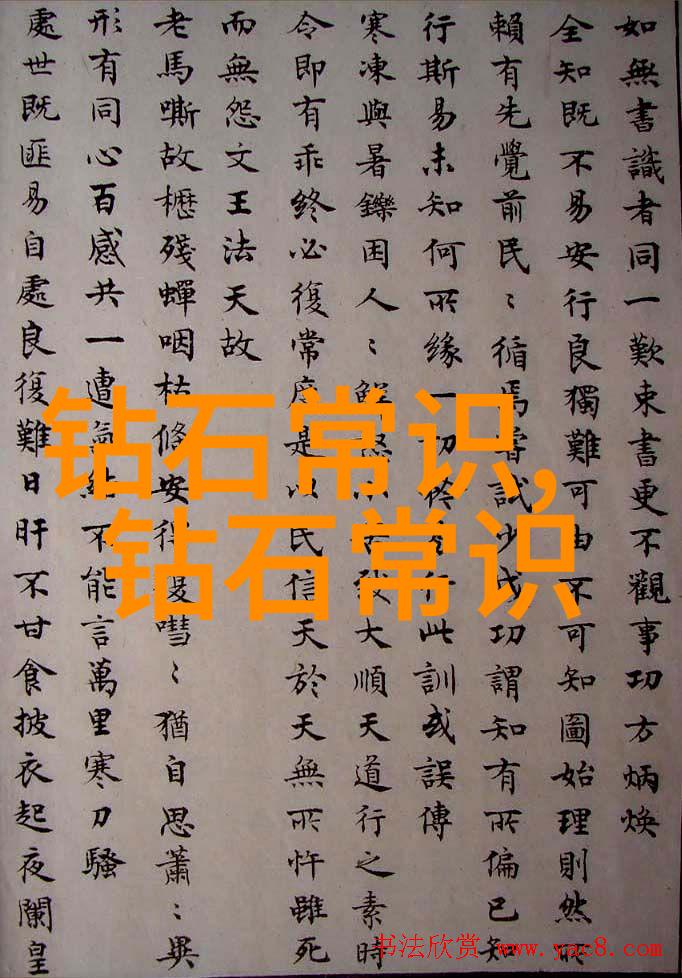 如無書識者同一歎束書更不觀事功方炳煥
全知既不易安行良獨難可由不可知圖始理則然所
賴有先覺前民〻循焉嘗試少成功謂知有所偏已知
行斯易未知何所緣一切行此訓或誤傳
寒凍與暑鑠困人〻鮮以致大順天道行之素時
令即有乖終必復常度是以民信天於天無所忤雖死
而無怨文王法天故
老馬嘶故櫪殘蟬咽枯條安得嘒〻猶自思蕭〻異
形有同心百感共一遭氣結不能言萬里寒刀騷
處世既匪易自處良復難日旰不甘食披衣起夜闌皇
钻石常识,
钻石常识
书法欣赏 www.yac8.com